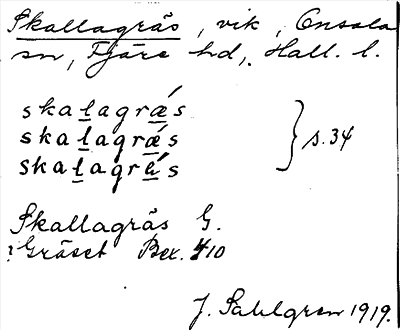 Skallagräs, vik, Onsala
sn, Fjäre hd, Hall. l.
skalagrǽs
skalagrǽs } s. 34
skalagrǽs
Skallagräs G.
Gräset Bex. 410
J. Sahlgren 1919.